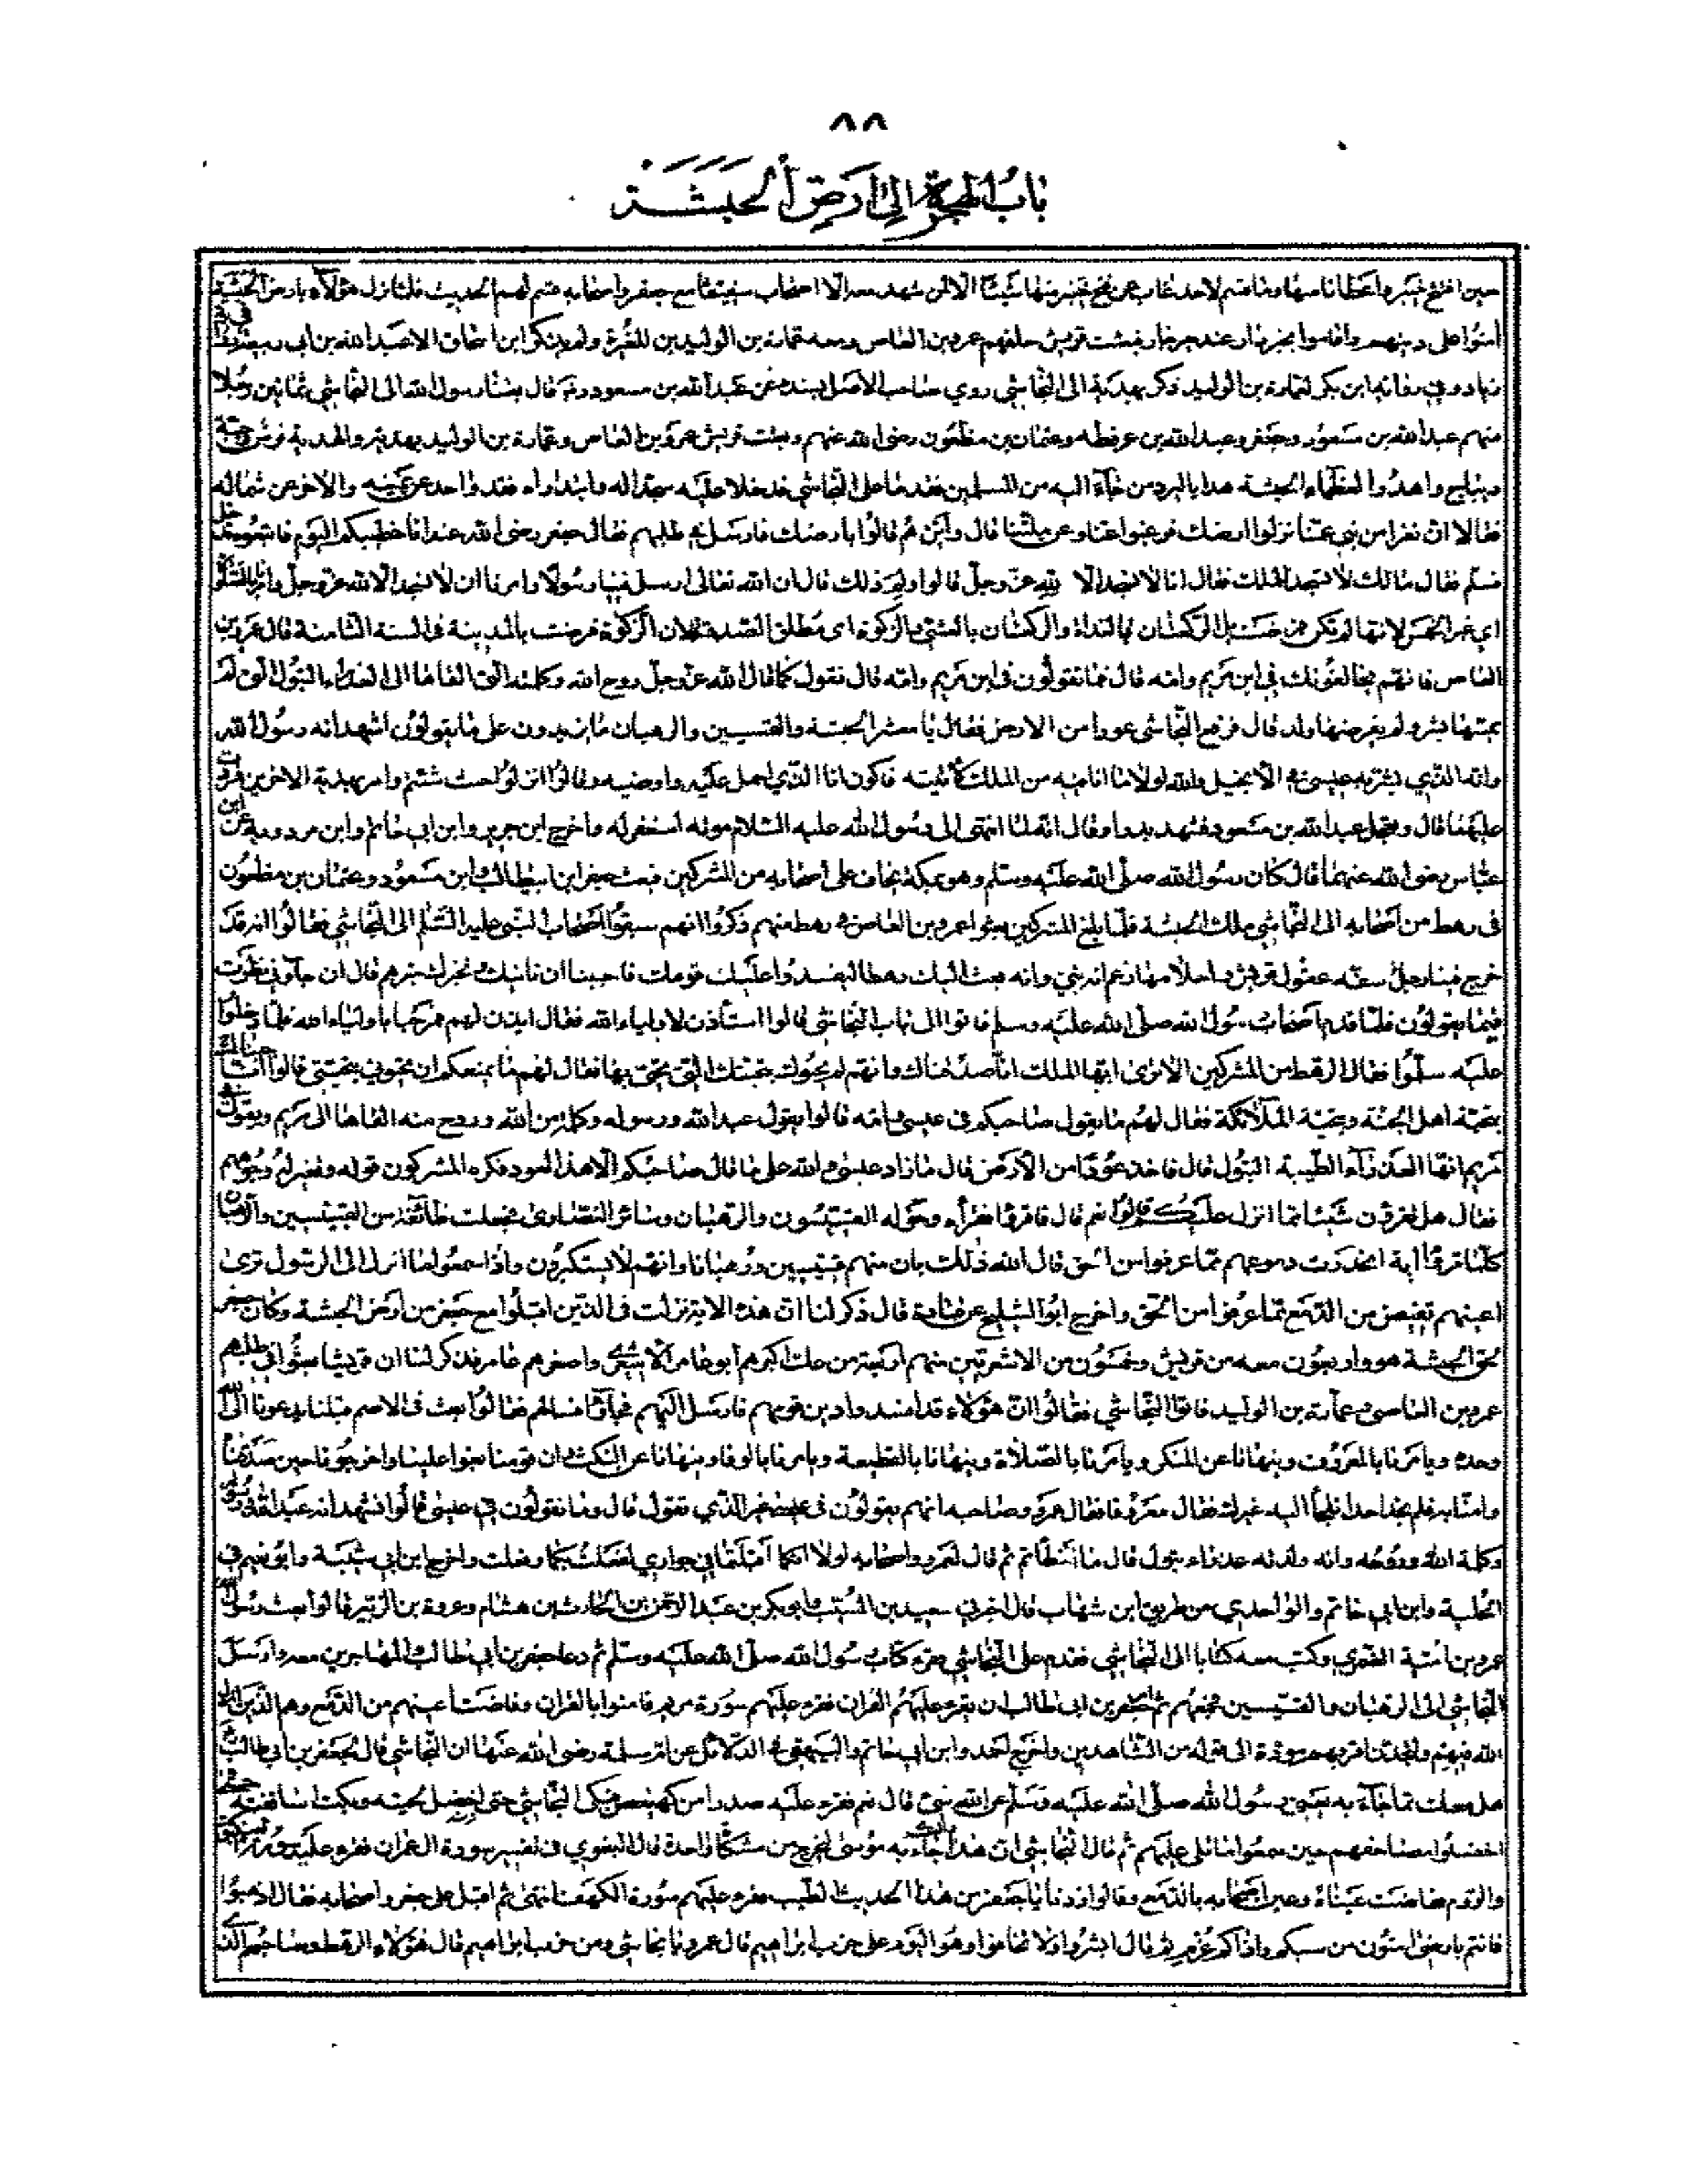 ٨٨
باب الهجرة الى ارض الحبشة
حين افتتح خيبر واعطانا منها وما قسم لاحد غاب عن فتح خيبر منها شيئا الا لمن شهد معه الا اصحاب سفينتنا مع جعفر واصحابه قسم لهم الحديث فلما نزل هؤلاء بارض الحبشة
امنوا على دينهم واقاموا بخير دار عند خير جار فبعثت قريش خلفهم عمرو بن العاص ومعه عمارة بن الوليد بن المغيرة ولم يذكر ابن اسحاق الا عبد الله بن ابي ربيعة
ابن بكر لعمارة بن الوليد ذكر بهدية الى النجاشي روى صاحب الاصل بسنده عن عبد الله بن مسعود رضه قال بعثنا رسول الله الى النجاشي ثمانين رجلا
منهم عبد الله بن مسعود وجعفر وعبد الله بن عرفطه وعثمان بن مظعون رضى الله عنهم وبعثت قريش عمرو بن العاص وعمارة بن الوليد بهدية والهدية فرس وجبة
ديباج واهدوا لعظماء الحبشة هدايا ليرد من جاء اليه من المسلمين فقدما على النجاشي فدخلا عليه سجدا له وابتدراه فقعد واحد عن يمينه والاخر عن شماله
فقالا ان نفرا من بني عمنا نزلوا ارضك فرغبوا عنا وعن ملتنا قال واين هم قالوا بارضك فارسل في طلبهم فقال جعفر رضى الله عنه انا خطيبكم اليوم فاتبعوه فدخل
فسلم فقال مالك لا تسجد للملك فقال انا لا نسجد الا لله عز وجل قالوا ولم ذلك قال ان الله تعالى ارسل فينا رسولا وامرنا ان لا نسجد الا لله عز وجل وامرنا بالصلوة
اي غير الخمس لانها لم تكن فرضت بل الركعتان بالغداة والركعتان بالعشي والزكوة اى مطلق الصدقة لان الزكوة فرضت بالمدينة في السنة الثامنة قال عمرو بن
العاص فانهم يخالفونك في ابن مريم وامه قال فما تقولون في ابن مريم وامه قال نقول كما قال الله عز وجل روح الله وكلمته التى القاها الى العذراء البتول التى لم
يمسها بشر ولم يفرضها ولد قال فرفع النجاشى عودا من الارض فقال يا معشر الحبشة والقسيسين والرهبان ما يزيدون على ما يقولون اشهد انه رسول الله
وانه الذي بشر به عيسى في الانجيل والله لولا ما انا فيه من الملك لاتيته فاكون انا الذي احمل نعليه واوضيه وقالوا انزلوا حيث شئتم وامر بهدية الاخرين فردت
عليهما قال وتعجل عبد الله بن مسعود فشهد بدرا وقال انه لما انتهى الى رسول الله عليه السلام موته استغفر له واخرج ابن جرير وابن ابي حاتم وابن مردويه عن ابن
عباس رضى الله عنهما قال كان رسول الله صلى الله عليه وسلم وهو بمكة يخاف على اصحابه من المشركين فبعث جعفر ابن ابيطالب وابن مسعود وعثمان بن مظعون
في رهط من اصحابه الى النجاشي ملك الحبشة فلما بلغ المشركين بعثوا عمرو بن العاص في رهط منهم ذكروا انهم سبقوا اصحاب النبى عليه السلم الى النجاشي فقالوا انه قد
خرج فينا رجل سفه عقول قريش واحلامها زعم انه نبي وانه بعث اليك رهطا ليفسدوا عليك قومك فاحببنا ان ناتيك ونخبرك خبرهم قال ان جاؤني نظرت
فيما يقولون فلما قدم اصحاب رسول الله صلى الله عليه وسلم فاتوا الى باب النجاشي قالوا استأذن لاولياء الله فقال ايذن لهم فمرحبا باولياء الله فلما دخلوا
عليه سلموا فقال الرهط من المشركين الا ترى ايها الملك انا صدقناك وانهم لم يحيوك بتحيتك التي تحيى بها فقال لهم ما يمنعكم ان تحيوني بتحيتى قالوا انا حييناك
بتحية اهل الجنة وتحية الملائكة فقال لهم ما يقول صاحبكم في عيسى وامه قالوا يقول عبد الله ورسوله وكلمة من الله وروح منه القاها الى مريم ويقول في
مريم انها العذراء الطيبة البتول قال فاخذ عودا من الارض قال ما زاد عيسى وامه على ما قال صاحبكم الا هذا العود فكره المشركون قوله وتغير له وجوههم
فقال هل تعرفون شيئا مما انزل عليكم قالوا نعم قال فاقرؤا فقرأوا وحوله القسيسون والرهبان وسائر النصارى فجعلت طائفة من القسيسين والرهبان
كلما قرؤا اية انحدرت دموعهم مما عرفوا من الحق قال الله ذلك بان منهم قسيسين ورهبانا وانهم لا يستكبرون واذا سمعوا ما انزل الى الرسول ترى
اعينهم تفيض من الدمع مما عرفوا من الحق واخرج ابو الشيخ عن قتادة قال ذكر لنا ان هذه الاية نزلت في الذين اقبلوا مع جعفر من ارض الحبشة وكان جعفر
لحق بالحبشة هو واربعون معه من قريش وخمسون من الاشعريين منهم اربعة من عك اكبرهم ابو عامر الاشعرى واصغرهم عامر فذكر لنا ان قريشا بعثوا في طلبهم
عمرو بن العاص وعمارة بن الوليد فاتوا النجاشي فقالوا ان هؤلاء قد افسدوا دين قومهم فارسل اليهم فجاؤا فسالهم فقالوا بعث في الامم قبلنا يدعونا الى الله
وحده ويامرنا بالمعروف وينهانا عن المنكر ويامرنا بالصلاة وينهانا بالقطيعة ويامرنا بالوفاء وينهانا عن النكث وان قومنا بغوا علينا واخرجونا حين صدقنا
وامنا به فلم نجد احدا نلجأ اليه غيرك فقال معروفا فقال عمرو وصاحبه انهم يقولون في عيسى غير الذي تقول قال وما تقولون في عيسى قالوا نشهد انه عبد الله ورسوله
وكلمة الله وروحه وانه ولدته عذراء بتول قال ما اخطأتم ثم قال لعمرو واصحابه لولا انكما اقبلتما في جواري لفعلت بكما وفعلت واخرج ابن ابي شيبة وابو نعيم في
الحلية وابن ابي حاتم والواحدي من طريق ابن شهاب قال اخبرني سعيد بن المسيب وابو بكر بن عبد الرحمن بن الحارث بن هشام وعروة بن الزبير قالوا بعث رسول الله
عمرو بن امية الضمري وكتب معه كتابا الى النجاشي فقدم على النجاشي فقرء كتاب رسول الله صلى الله عليه وسلم ثم دعا جعفر بن ابي طالب والمهاجرين معه وارسل
النجاشي الى الرهبان والقسيسين فجمعهم ثم امر جعفر بن ابي طالب ان يقرء عليهم القران فقرء عليهم سورة مريم فامنوا بالقران وفاضت اعينهم من الدمع وهم الذين انزل
الله فيهم ولتجدن اقربهم مودة الى قوله من الشاهدين واخرج احمد وابن ابي حاتم والبيهقي في الدلائل عن ام سلمة رضى الله عنها ان النجاشي قال لجعفر بن ابي طالب
هل معك مما جاء به يعنى رسول الله صلى الله عليه وسلم عن الله شئ قال نعم فقرء عليه صدرا من كهيعص فبكى النجاشي حتى اخضل لحيته وبكت اساقفته حتى
اخضلوا مصاحفهم حين سمعوا ما تلى عليهم ثم قال النجاشي ان هذا والذي جاء به موسى ليخرج من مشكاة واحدة قال البغوي في تفسير سورة ال عمران فقرء عليه سورة العنكبوت
والروم ففاضت عيناه وعيون اصحابه بالدمع وقالوا زدنا يا جعفر من هذا الحديث الطيب فقرء عليهم سورة الكهف انتهى ثم اقبل على جعفر واصحابه فقال اذهبوا
فانتم بارضى امنون من سبكم واذاكم غرم ثم قال ابشروا ولا تخافوا وهو اليوم على حزب ابراهيم قال عمرو يا نجاشي ومن حزب ابراهيم قال هؤلاء الرهط وصاحبهم الذي